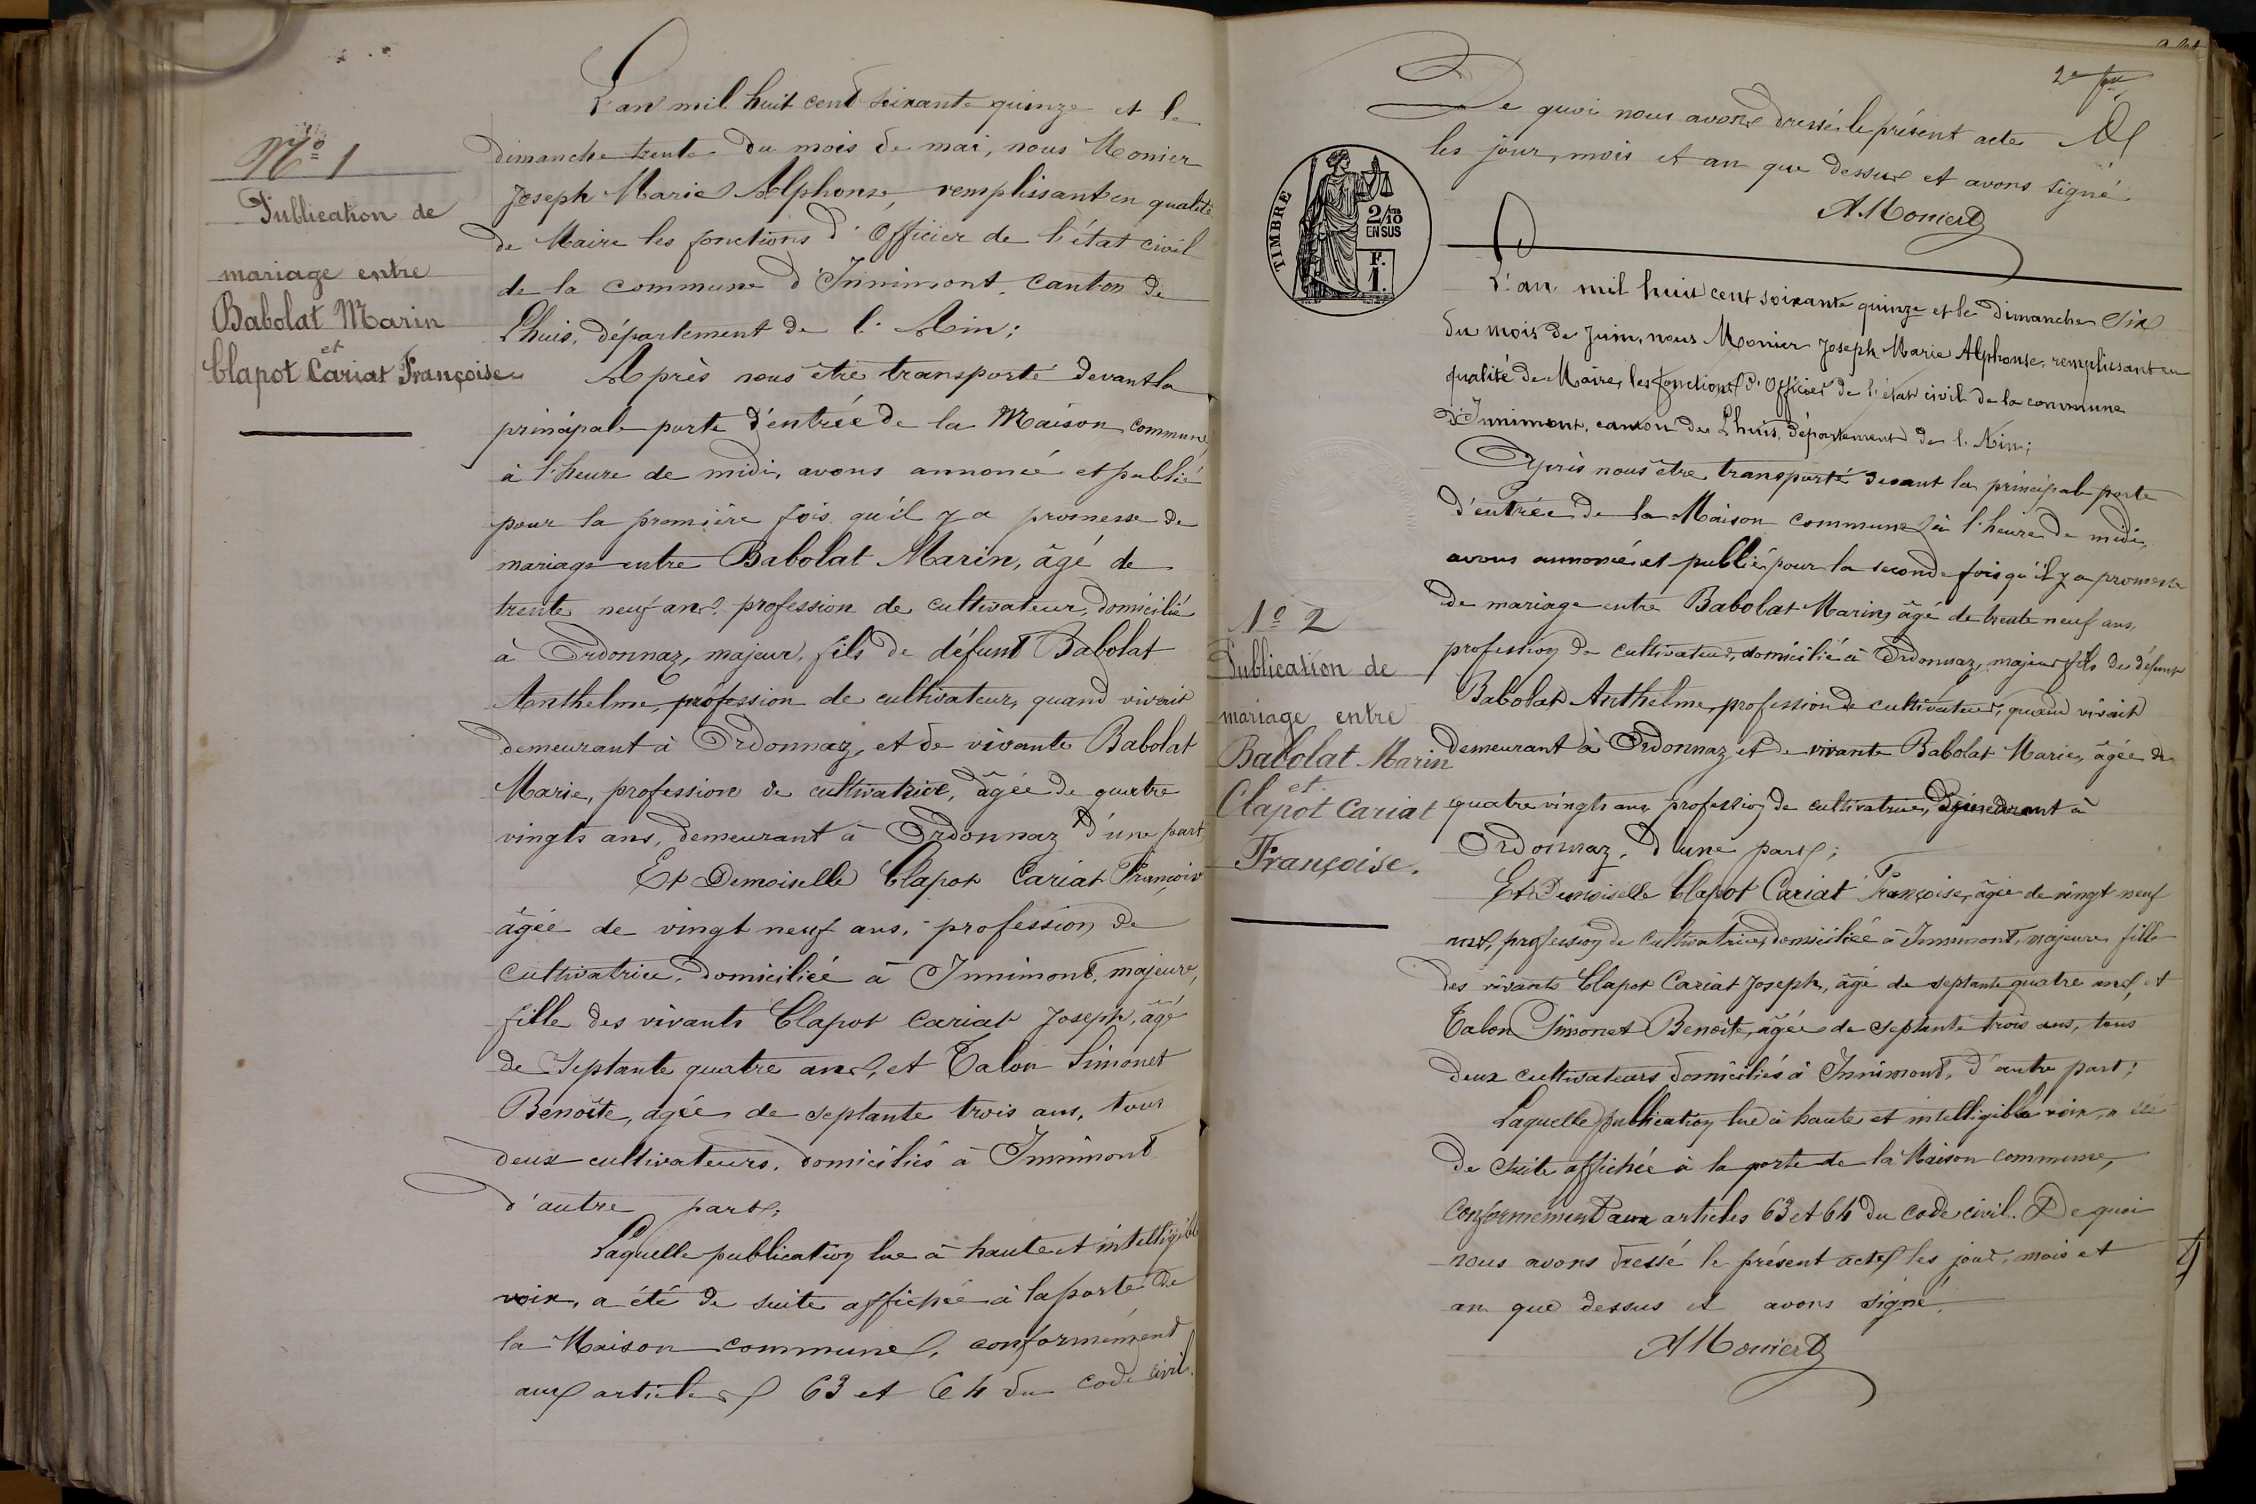 No 1
Publication de
mariage entre
Babolat Marin
et
Clapot Cariat Françoise
L'an mil huit cent soixante quinze et le
dimanche trente du mois de mai, nous Monier
Joseph Marie Alphonse, remplissant en qualité
de Maire les fonctions d'Officier de l'état civil
de la commune d'Innimont, canton de
Lhuis, département de l'Ain;
Après nous être transporté devant la
principale porte d'entrée de la Maison commune,
à l'heure de midi, avons annoncé et publié
pour la première fois qu'il y a promesse de
mariage entre Babolat Marin, âgé de
trente neuf ans, profession de cultivateur, domicilié
à Ordonnaz, majeur, fils de défunt Babolat
Anthelme, profession de cultivateur, quand vivait
demeurant à Ordonnaz, et de vivante Babolat
Marie, profession de cultivatrice, âgée de quatre
vingts ans, demeurant à Ordonnaz d'une part
Et Demoiselle Clapot Cariat Françoise
âgée de vingt neuf ans, profession de
cultivatrice, domiciliée à Innimont, majeure,
fille des vivants Clapot Cariat Joseph, âgé
de septante quatre ans, et Talon Simonet
Benoîte, agée de septante trois ans, tous
deux cultivateurs, domiciliés à Innimont
d'autre part;
Laquelle publication lue à haute et intelligible
voix, a été de suite affichée à la porte de
la Maison commune, conformément
aux articles 63 et 64 du code civil.
2e
De quoi nous avons dressé le présent acte
les jour, mois et an que dessus et avons signé
A Monier
TIMBRE
2/10 ms
EN SUS
F.
1.
L'an mil huit cent soixante quinze et le dimanche six
du mois de Juin, nous Monier Joseph Marie Alphonse, remplissant en
qualité de Maire, les fonctions d'Officier de l'état civil de la commune
d'Innimont, canton de Lhuis, département de l'Ain;
Après nous être transporté devant la principale porte
d'entrée de la Maison commune, à l'heure de midi,
avons annoncé et publié, pour la seconde fois qu'il y a promesse
de mariage entre Babolat Marin, âgé de trente neuf ans,
profession de cultivateur, domicilié à Ordonnaz, majeur, fils de défunt
Babolat Anthelme, profession de cultivateur, quand vivait
demeurant à Ordonnaz et de vivante Babolat Marie, âgée de
quatre vingts ans, profession de cultivatrice, demeurant à
Ordonnaz, d'une part;
Et Demoiselle Clapot Cariat Françoise, âgée de vingt neuf
ans, profession de cultivatrice, domiciliée à Innimont, majeure, fille
des vivants Clapot Cariat Joseph, âgé de septante quatre ans, et
Talon Simonet Benoîte, âgée de septante trois ans, tous
deux cultivateurs domiciliés à Innimont, d'autre part;
Laquelle publication lue à haute et intelligible voix, a été
de suite affichée à la porte de la Maison commune,
conformément aux articles 63 et 64 du code civil. De quoi
nous avons dressé le présent acte les jour, mois et
an que dessus et avons signé.
A Monier
No 2
Publication de
mariage entre
Babolat Marin
et
Clapot Cariat
Françoise.